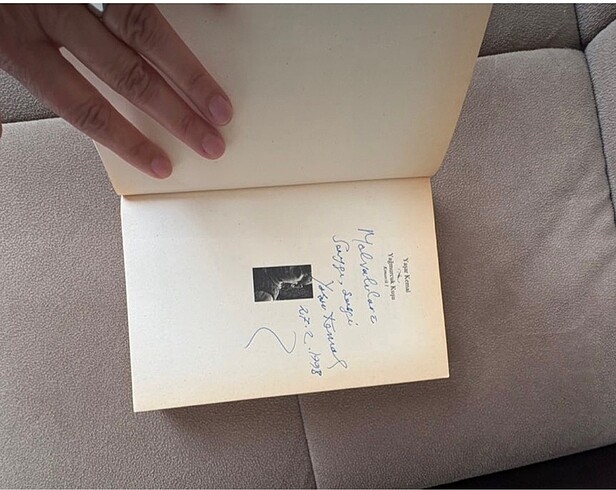 Yaşar Kemal
Yağmurcuk Kuşu
Kimsecik I
Saygı, sevgi
Yaşar Kemal
27.2.1998